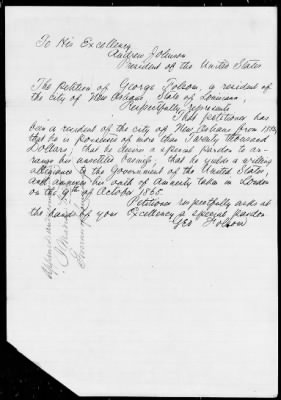 To His Excellency
Andrew Johnson
President of the United States
The Petition of George Folsom, a resident of
the city of New Orleans, State of Louisiana,
Respectfully represents
That petitioner has
been a resident of the city of New Orleans from
that he is possessed of more than Twenty thousand
Dollars; that he desires a special pardon to
his unsettled that he yields a willing
allegiance to the Government of the United States,
and annexes his oath of Amnesty taken in London
on the of October 1865.
Petitioner respectfully asks at
the hands of your Excellency a special pardon
Geo Folsom